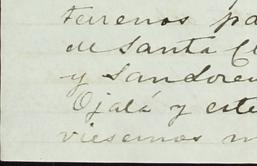 terrenos pa
de Santa Cl
y Sandore
Ojalá y este
viesemos m